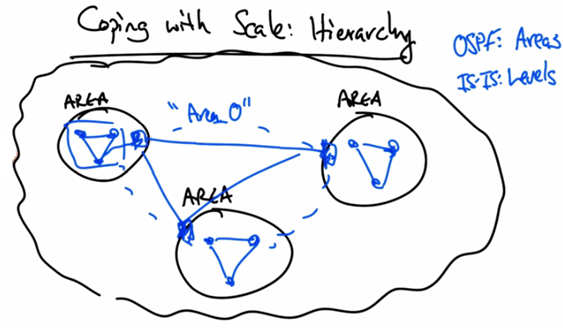 Coping with Scale: Hierarchy
OSPF: Areas
IS-IS: Levels
AREA
"Area 0"
AREA
AREA